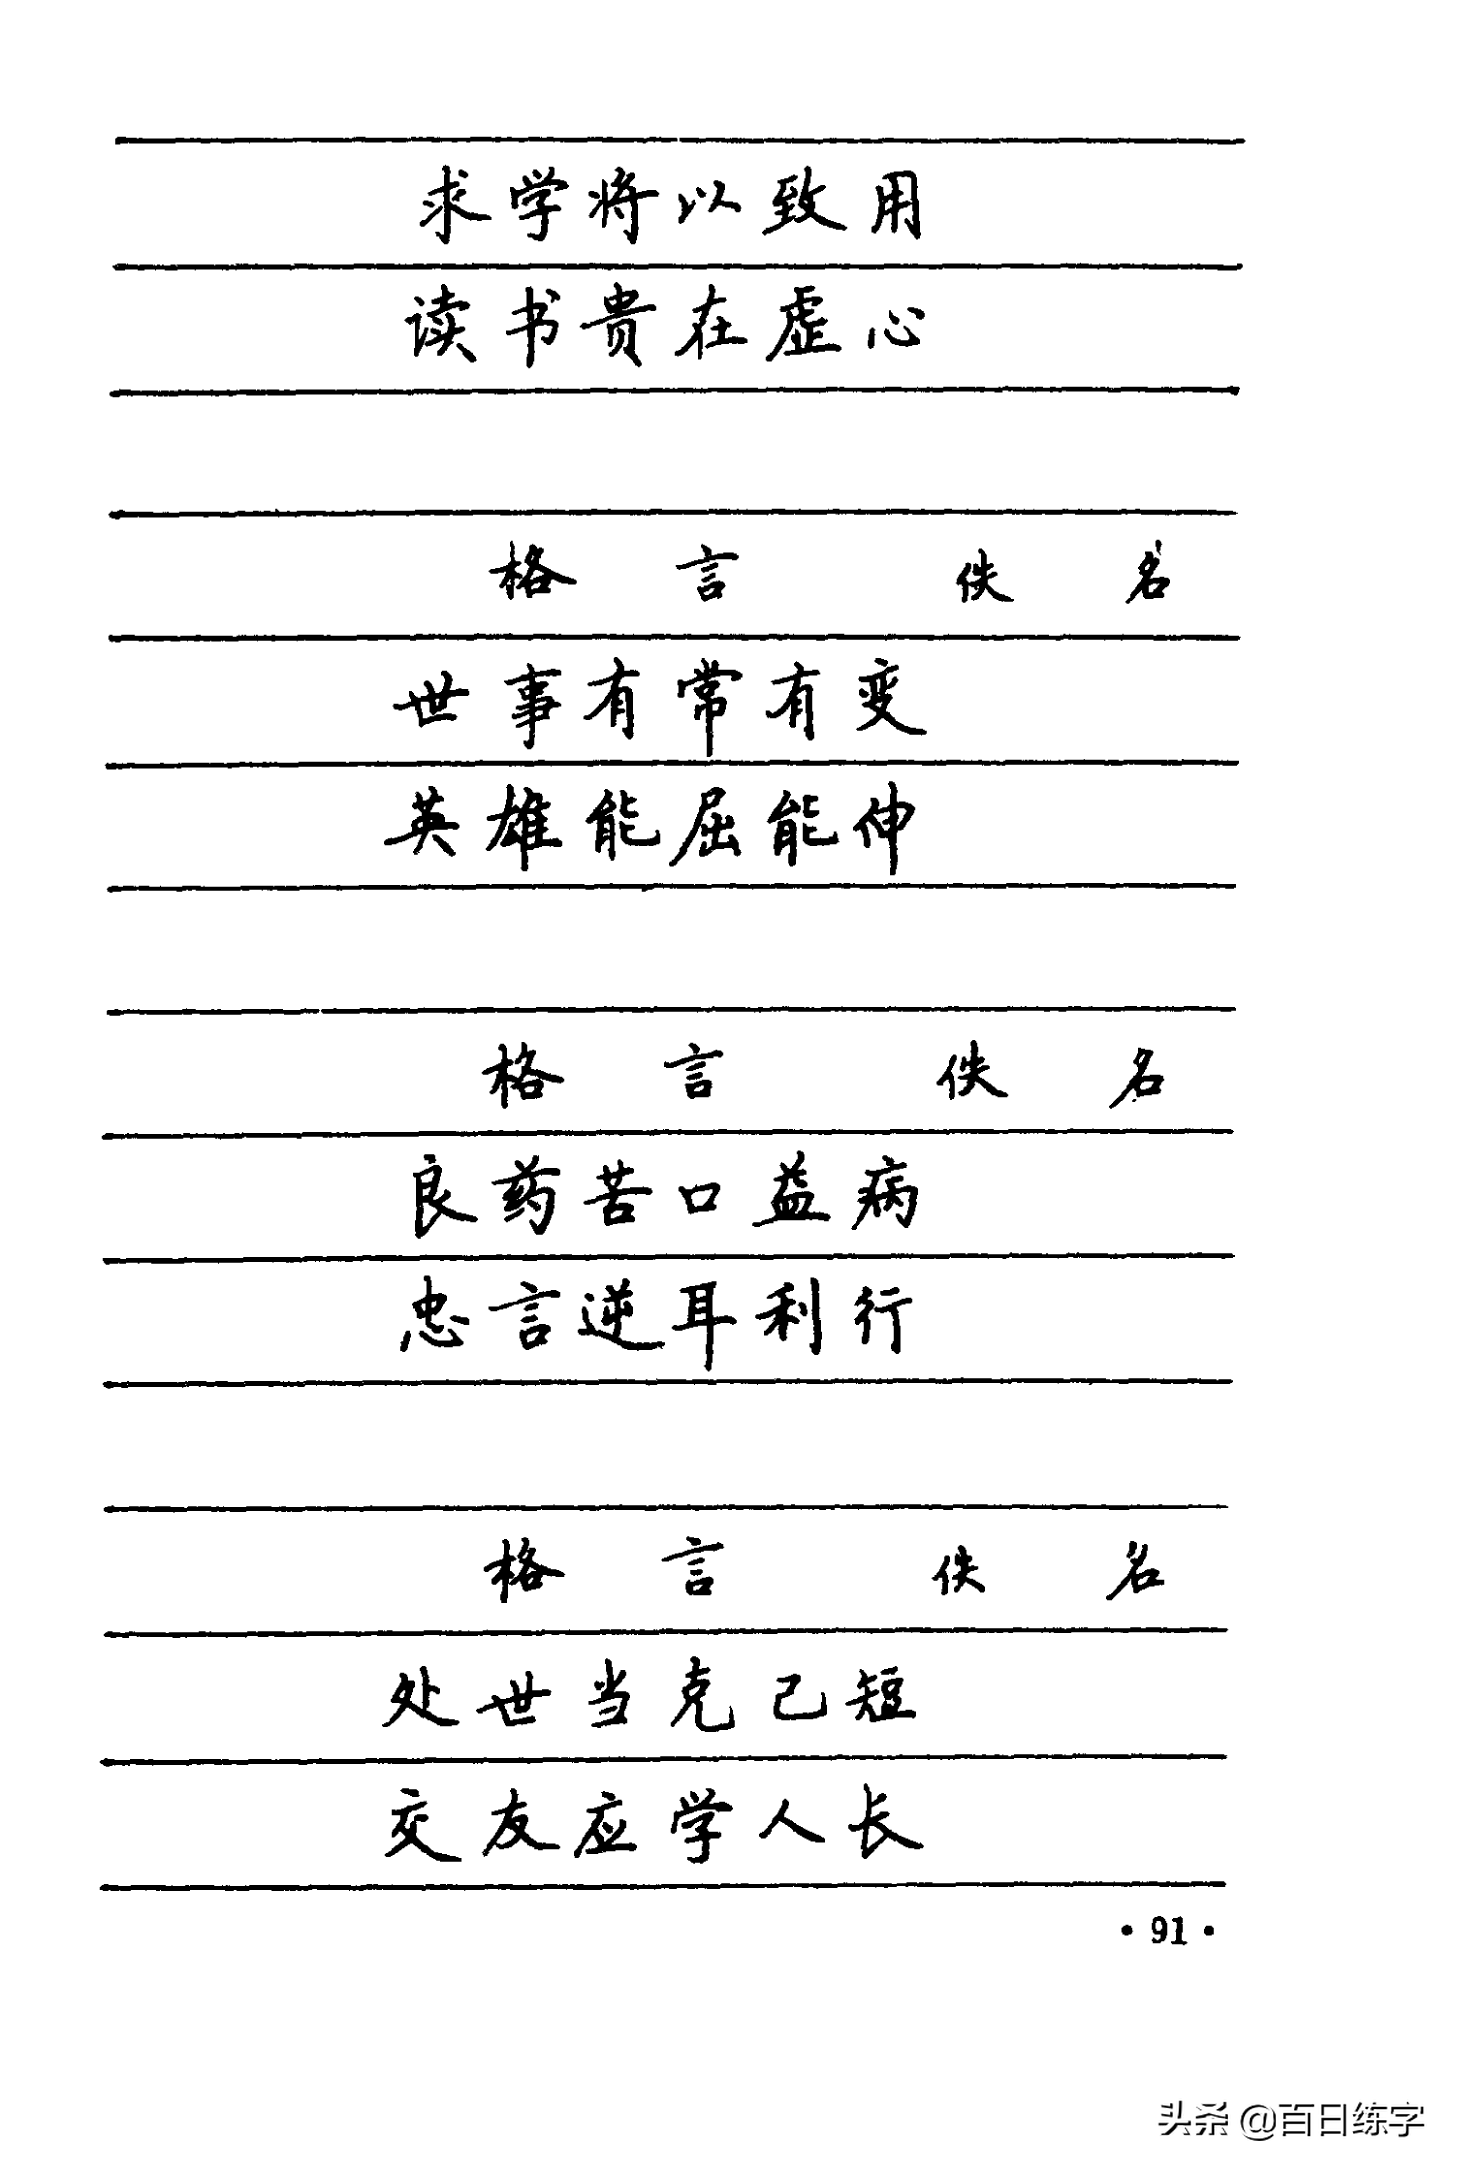 求学将以致用
读书贵在虚心
格言 佚名
世事有常有变
英雄能屈能伸
格言 佚名
良药苦口益病
忠言逆耳利行
格言 佚名
处世当克己短
交友应学人长
·91·
头条 @百日练字